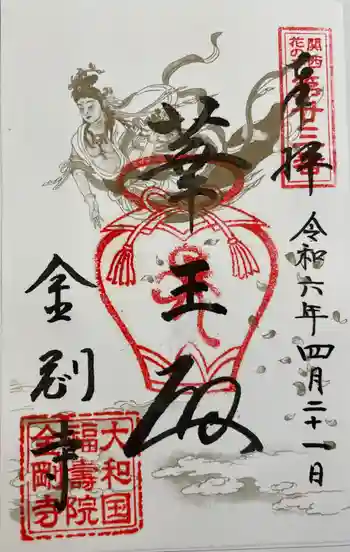 奉拝
関西
花の寺
第廿三番
令和六年四月二十一日
華王殿
金剛寺
大和国
福壽院
金剛寺